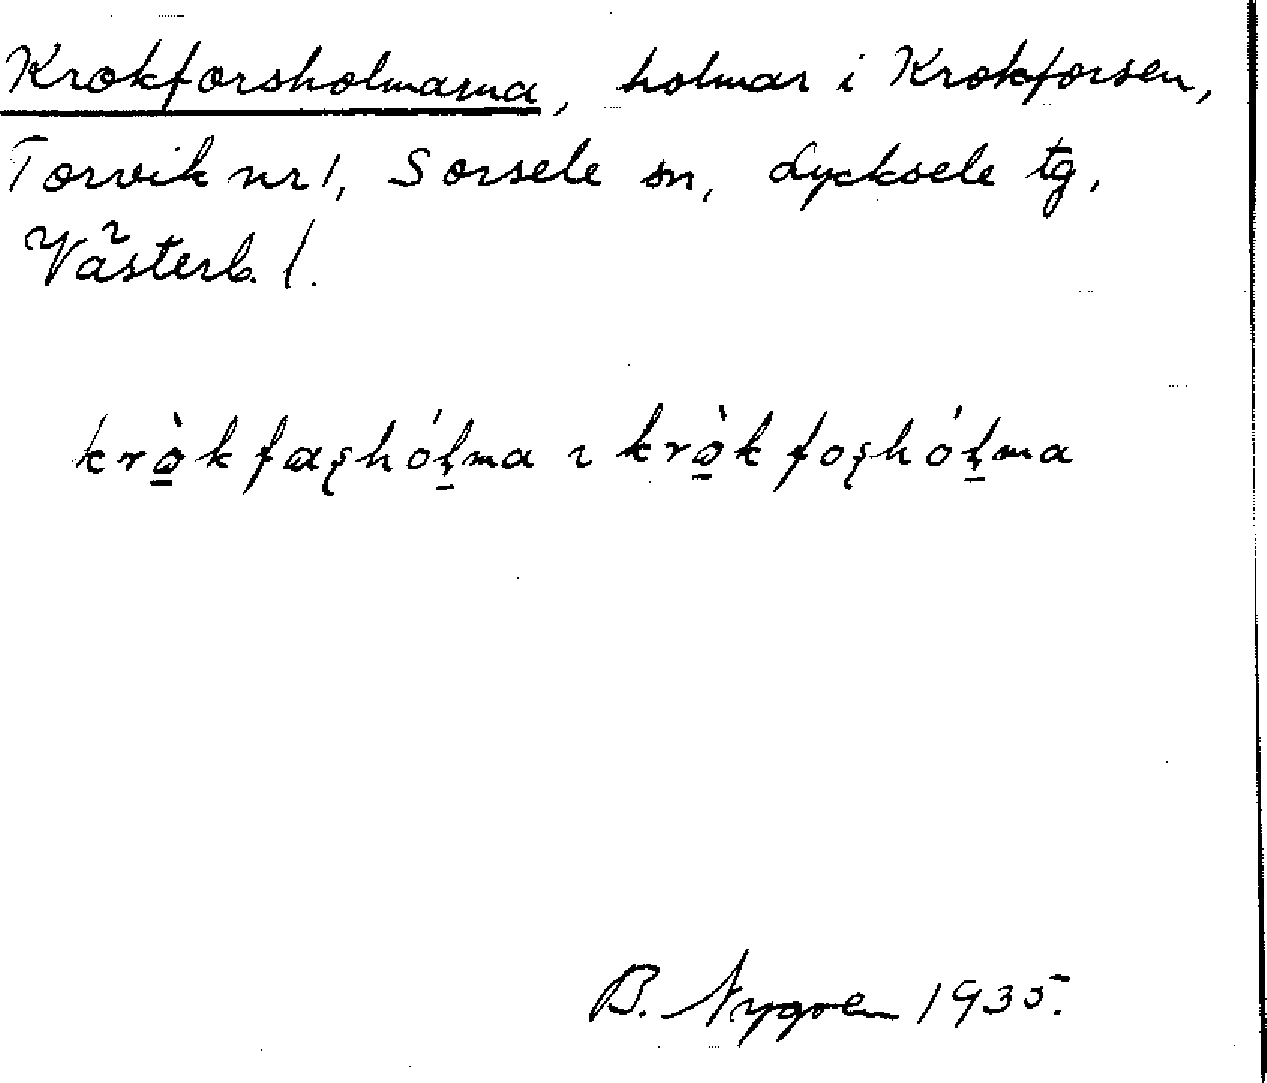 Krokforsholmarna, holmar i Krokforsen,
Torvik nr 1, Sorsele sn, Lycksele tg,
Västerb. l.
krò̱kfaʂhóḷ̱ma ı krò̱kfoʂhóḷ̱ma
B. Nygren 1935.